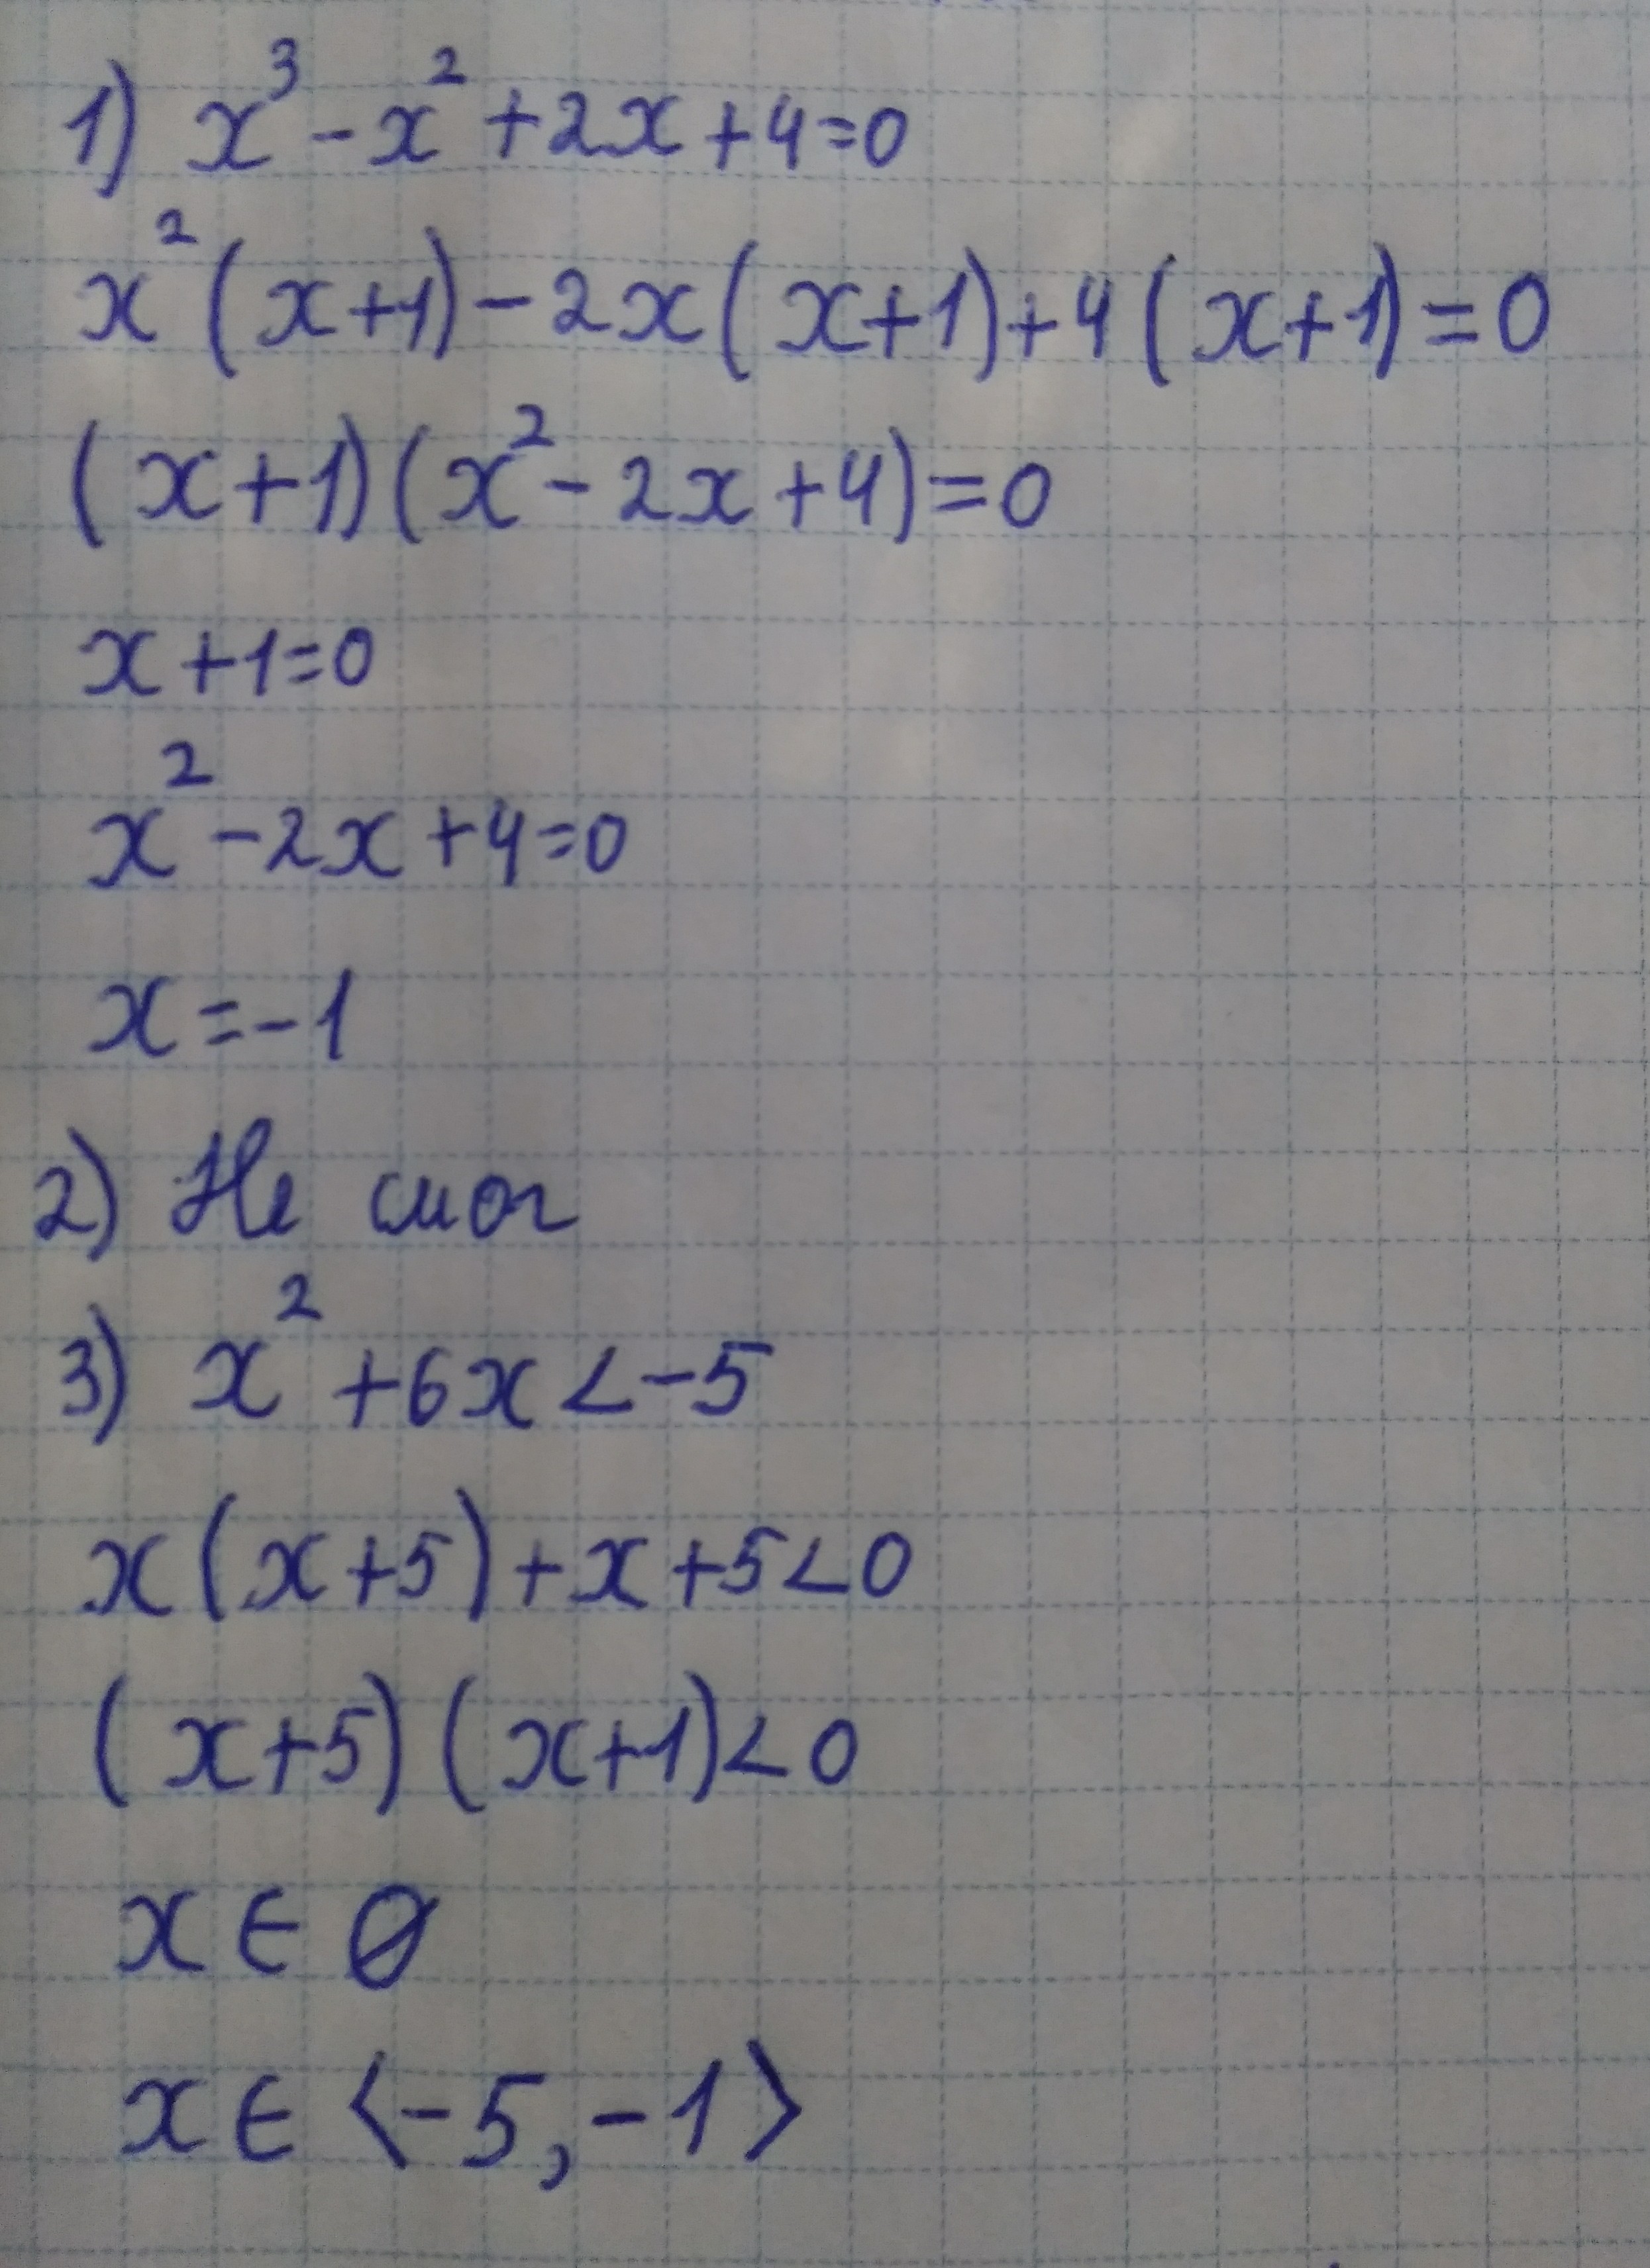 1) x³ - x² + 2x + 4 = 0
x² (x+1) - 2x (x+1) + 4 (x+1) = 0
(x+1) (x² - 2x + 4) = 0
x + 1 = 0
x² - 2x + 4 = 0
x = -1
2) Не смог
3) x² + 6x < -5
x (x+5) + x + 5 < 0
(x+5) (x+1) < 0
x ∈ ∅
x ∈ ⟨-5, -1⟩